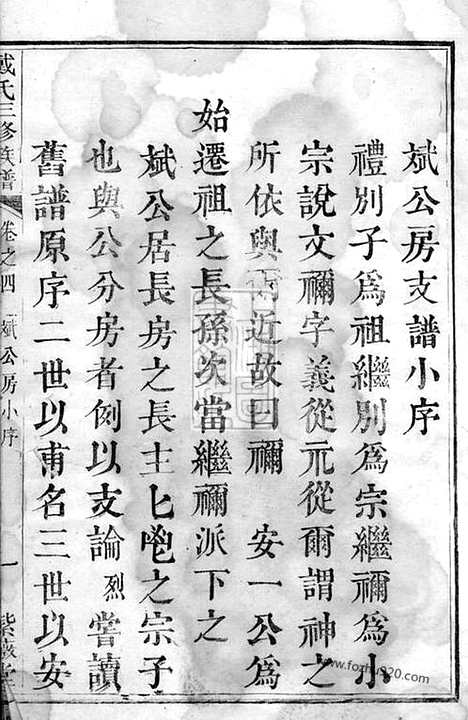 斌公房支譜小序
禮別子為祖繼別為宗繼禰為小
宗說文禰字義從示從爾謂神之
所依與爾近故曰禰 安一公為
始遷祖之長孫次當繼禰派下之
斌公居長房之長主匕鬯之宗子
也與公分房者例以支論烈嘗讀
舊譜原序二世以甫名三世以安
戴氏三修族譜 卷之四 斌公房小序 一
www.fozhu920.com